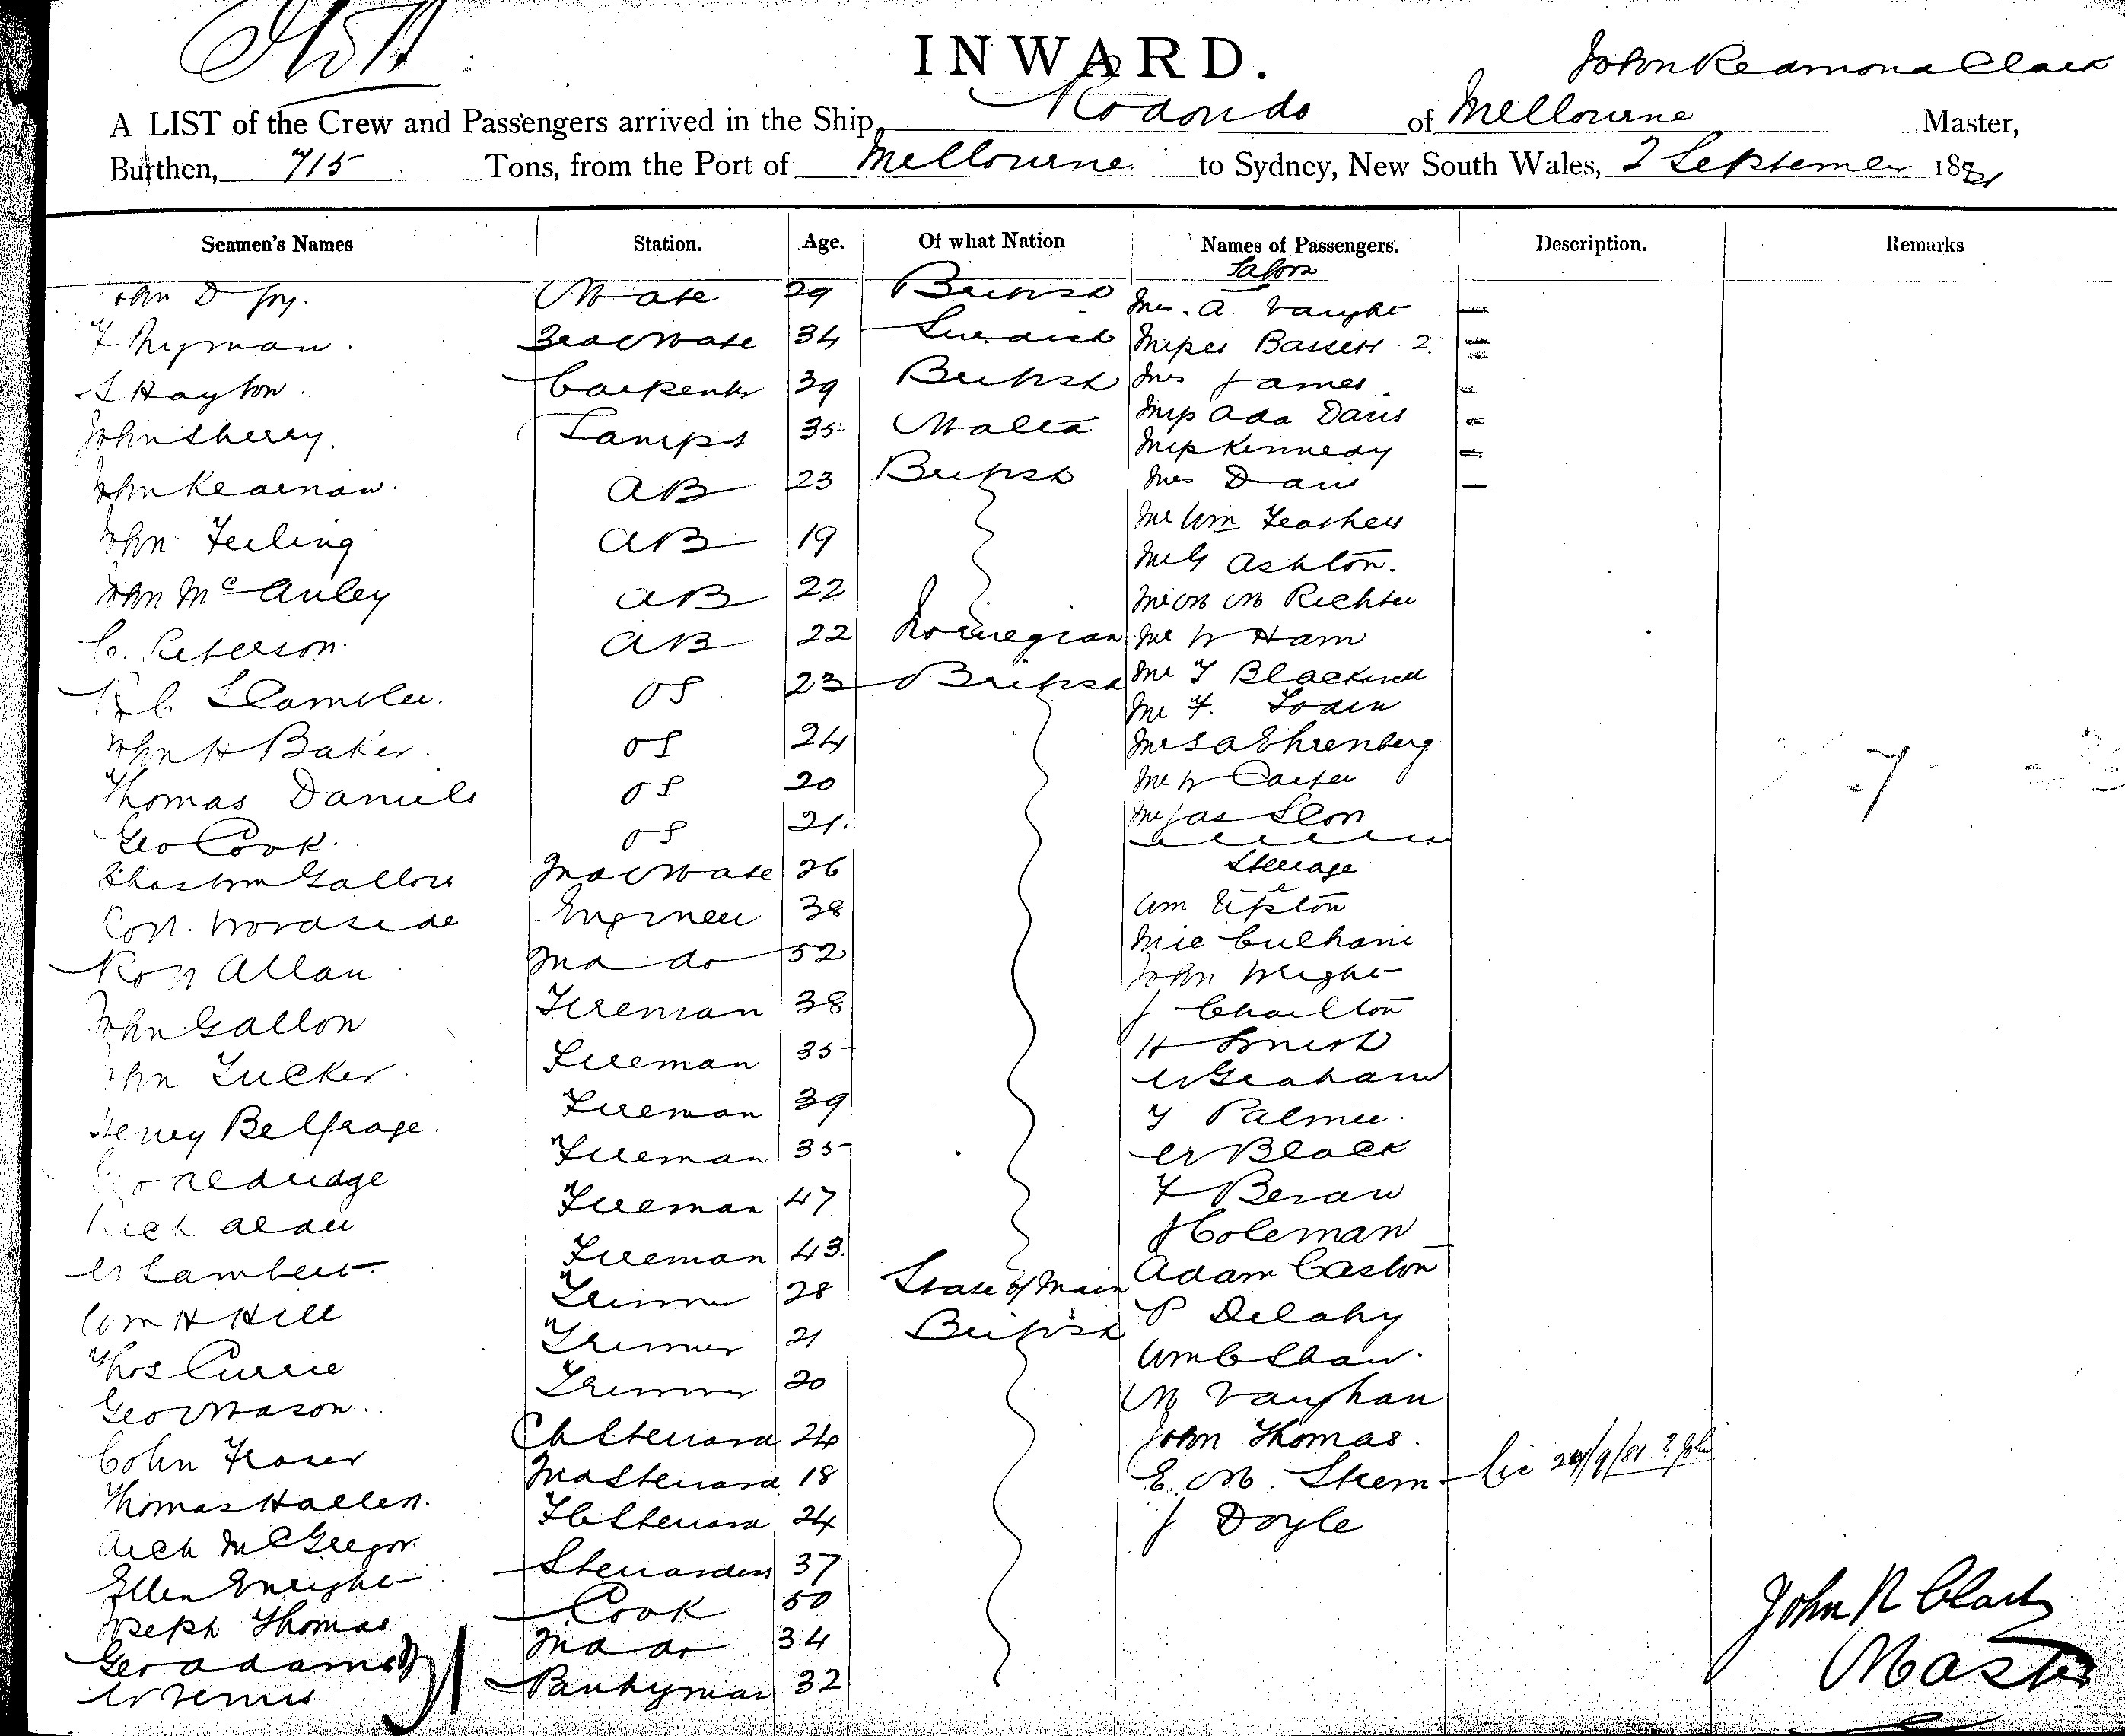 INWARD.
John Redmond Clark
A LIST of the Crew and Passengers arrived in the Ship Rodondo of Melbourne Master,
Burthen, 715 Tons, from the Port of Melbourne to Sydney, New South Wales, 2 September 1881
Seamen's Names Station. Age. Of what Nation Names of Passengers. Description. Remarks
Saloon
John D Joy. Mate 29 British Mrs. A. Vaught
F Nyman. 2nd Mate 34 Swedish Misses Bassett 2
S Hayton. Carpenter 39 British Mrs James
John Sherry. Lamps 35 Malta Miss Ada Davis
Miss Kennedy
John Kearnan. AB 23 British Mrs Davis
Mr Wm Feathers
John Feeling AB 19
Mr G Ashton.
John McAuley AB 22 Mr M M Richter
C. Peterson. AB 22 Norwegian Mr W Ham
OS 23 British Mr T Blackwell
Mr F.
John H Baker. OS 24 Mr S A Ehrenberg
Thomas Daniels OS 20 Mr W Carter
Geo Cook. OS 21. Mr Jas
Steerage
Chas Wm Gallou 2nd Mate 26
Woodside Engineer 38 Wm Upton
Mic Culhane
Allan 2nd do 52 John Wright
John Gallon Fireman 38 J Charlton
John Tucker. Fireman 35 H Smith
W Graham
Henry Belfrage. Fireman 39 T Palmer.
Fireman 35 W Black
Rich Fireman 47 F Beran
J Coleman
W Lambert. Fireman 43. Adam Caston
Wm H Hill Trimmer 28 State of Main P Delahy
Thos Currie Trimmer 21 British Wm C Shaw.
Geo Mason. Trimmer 20 M Vaughan
Colin Fraser Ch Steward 24 John Thomas.
Thomas Hallen. 2nd Steward 18 E. M. Skem Lic 24/9/81
Arch McGregor. F C Steward 24 J Doyle
Ellen Enright Stewardess 37
Joseph Thomas Cook 50
Geo Adams 2nd do 34
W Pantryman 32
John R Clark
Master